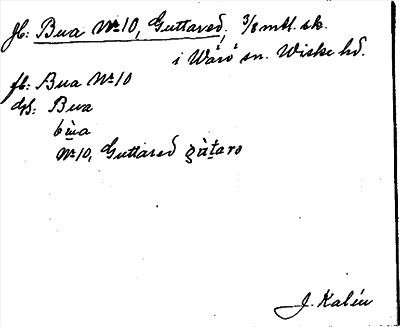 jb: Bua No 10, Guttared, 3/8 mtl. sk.
i Wärö sn. Wiske hd.
fb: Bua No 10
dpl: Bua
bùa
No 10, Guttared gùtarə
J. Kalén